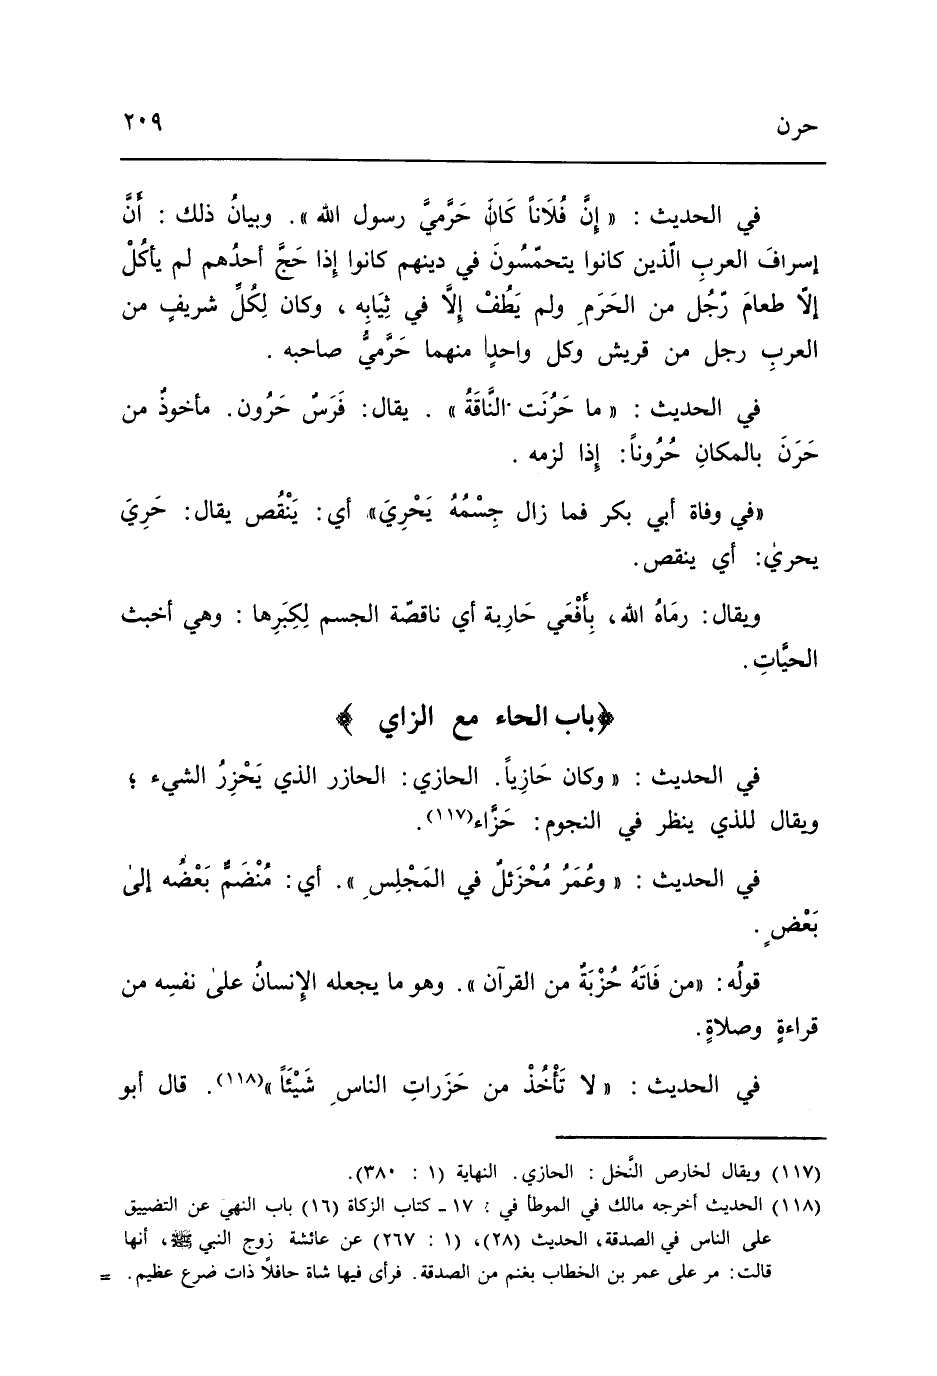 حرن
٢٠٩
في الحديث : « إِنَّ فُلَاناً كَانَ حَرَّميَّ رسول الله ». وبيانُ ذلك : أَنَّ
إسرافَ العربِ الّذين كانوا يتحمّسُونَ في دينهم كانوا إِذا حَجَّ أحدُهم لم يأكُلْ
إلّا طعامَ رّجُل من الحَرَمِ ولم يَطُفْ إِلَّا في ثِيَابِه ، وكان لِكُلِّ شريفٍ من
العربِ رجل من قريش وكل واحدٍا منهما حَرَّميُّ صاحبه .
في الحديث : « ما حَرُنَت النَّاقَةُ » . يقال: فَرَسٌ حَرُون. مأخوذٌ من
حَرَنَ بالمكانِ حُرُوناً: إِذا لزمه .
«في وفاة أبي بكر فما زال جِسْمُهُ يَحْرِيَ» أي: يَنْقُص يقال: حَرِيَ
يحريٰ: أي ينقص.
ويقال: رمَاهُ الله، بِأَفْعَي حَارِية أي ناقصّة الجسم لِكِبَرِها : وهي أخبث
الحيَّاتِ.
﴿باب الحاء مع الزاي ﴾
في الحديث : « وكان حَازِياً. الحازي: الحازر الذي يَحْزِرُ الشيء ؛
ويقال للذي ينظر في النجوم: حَزَّاء(١١٧).
في الحديث : « وعُمَرُ مُحْزَئلٌ في المَجْلِسِ ». أي: مُنْضَمٌّ بَعْضُه إلىٰ
بَعْضٍ .
قولُه: «من فَاتَهُ حُزْبَةٌ من القرآن ». وهو ما يجعله الإِنسانُ علىٰ نفسِه من
قراءةٍ وصلاةٍ.
في الحديث : « لا تَأْخُذْ من حَزَراتِ الناسِ شَيْئَاً»(١١٨). قال أبو
(١١٧) ويقال لخارص النَّخل : الحازي. النهاية (١ : ٣٨٠).
(١١٨) الحديث أخرجه مالك في الموطأ في : ١٧ - كتاب الزكاة (١٦) باب النهي عن التضييق
على الناس في الصدقة، الحديث (٢٨)، (١ : ٢٦٧) عن عائشة زوج النبي ﷺ، أنها
قالت: مر على عمر بن الخطاب بغنم من الصدقة. فرأى فيها شاة حافلاً ذات ضرع عظيم. =